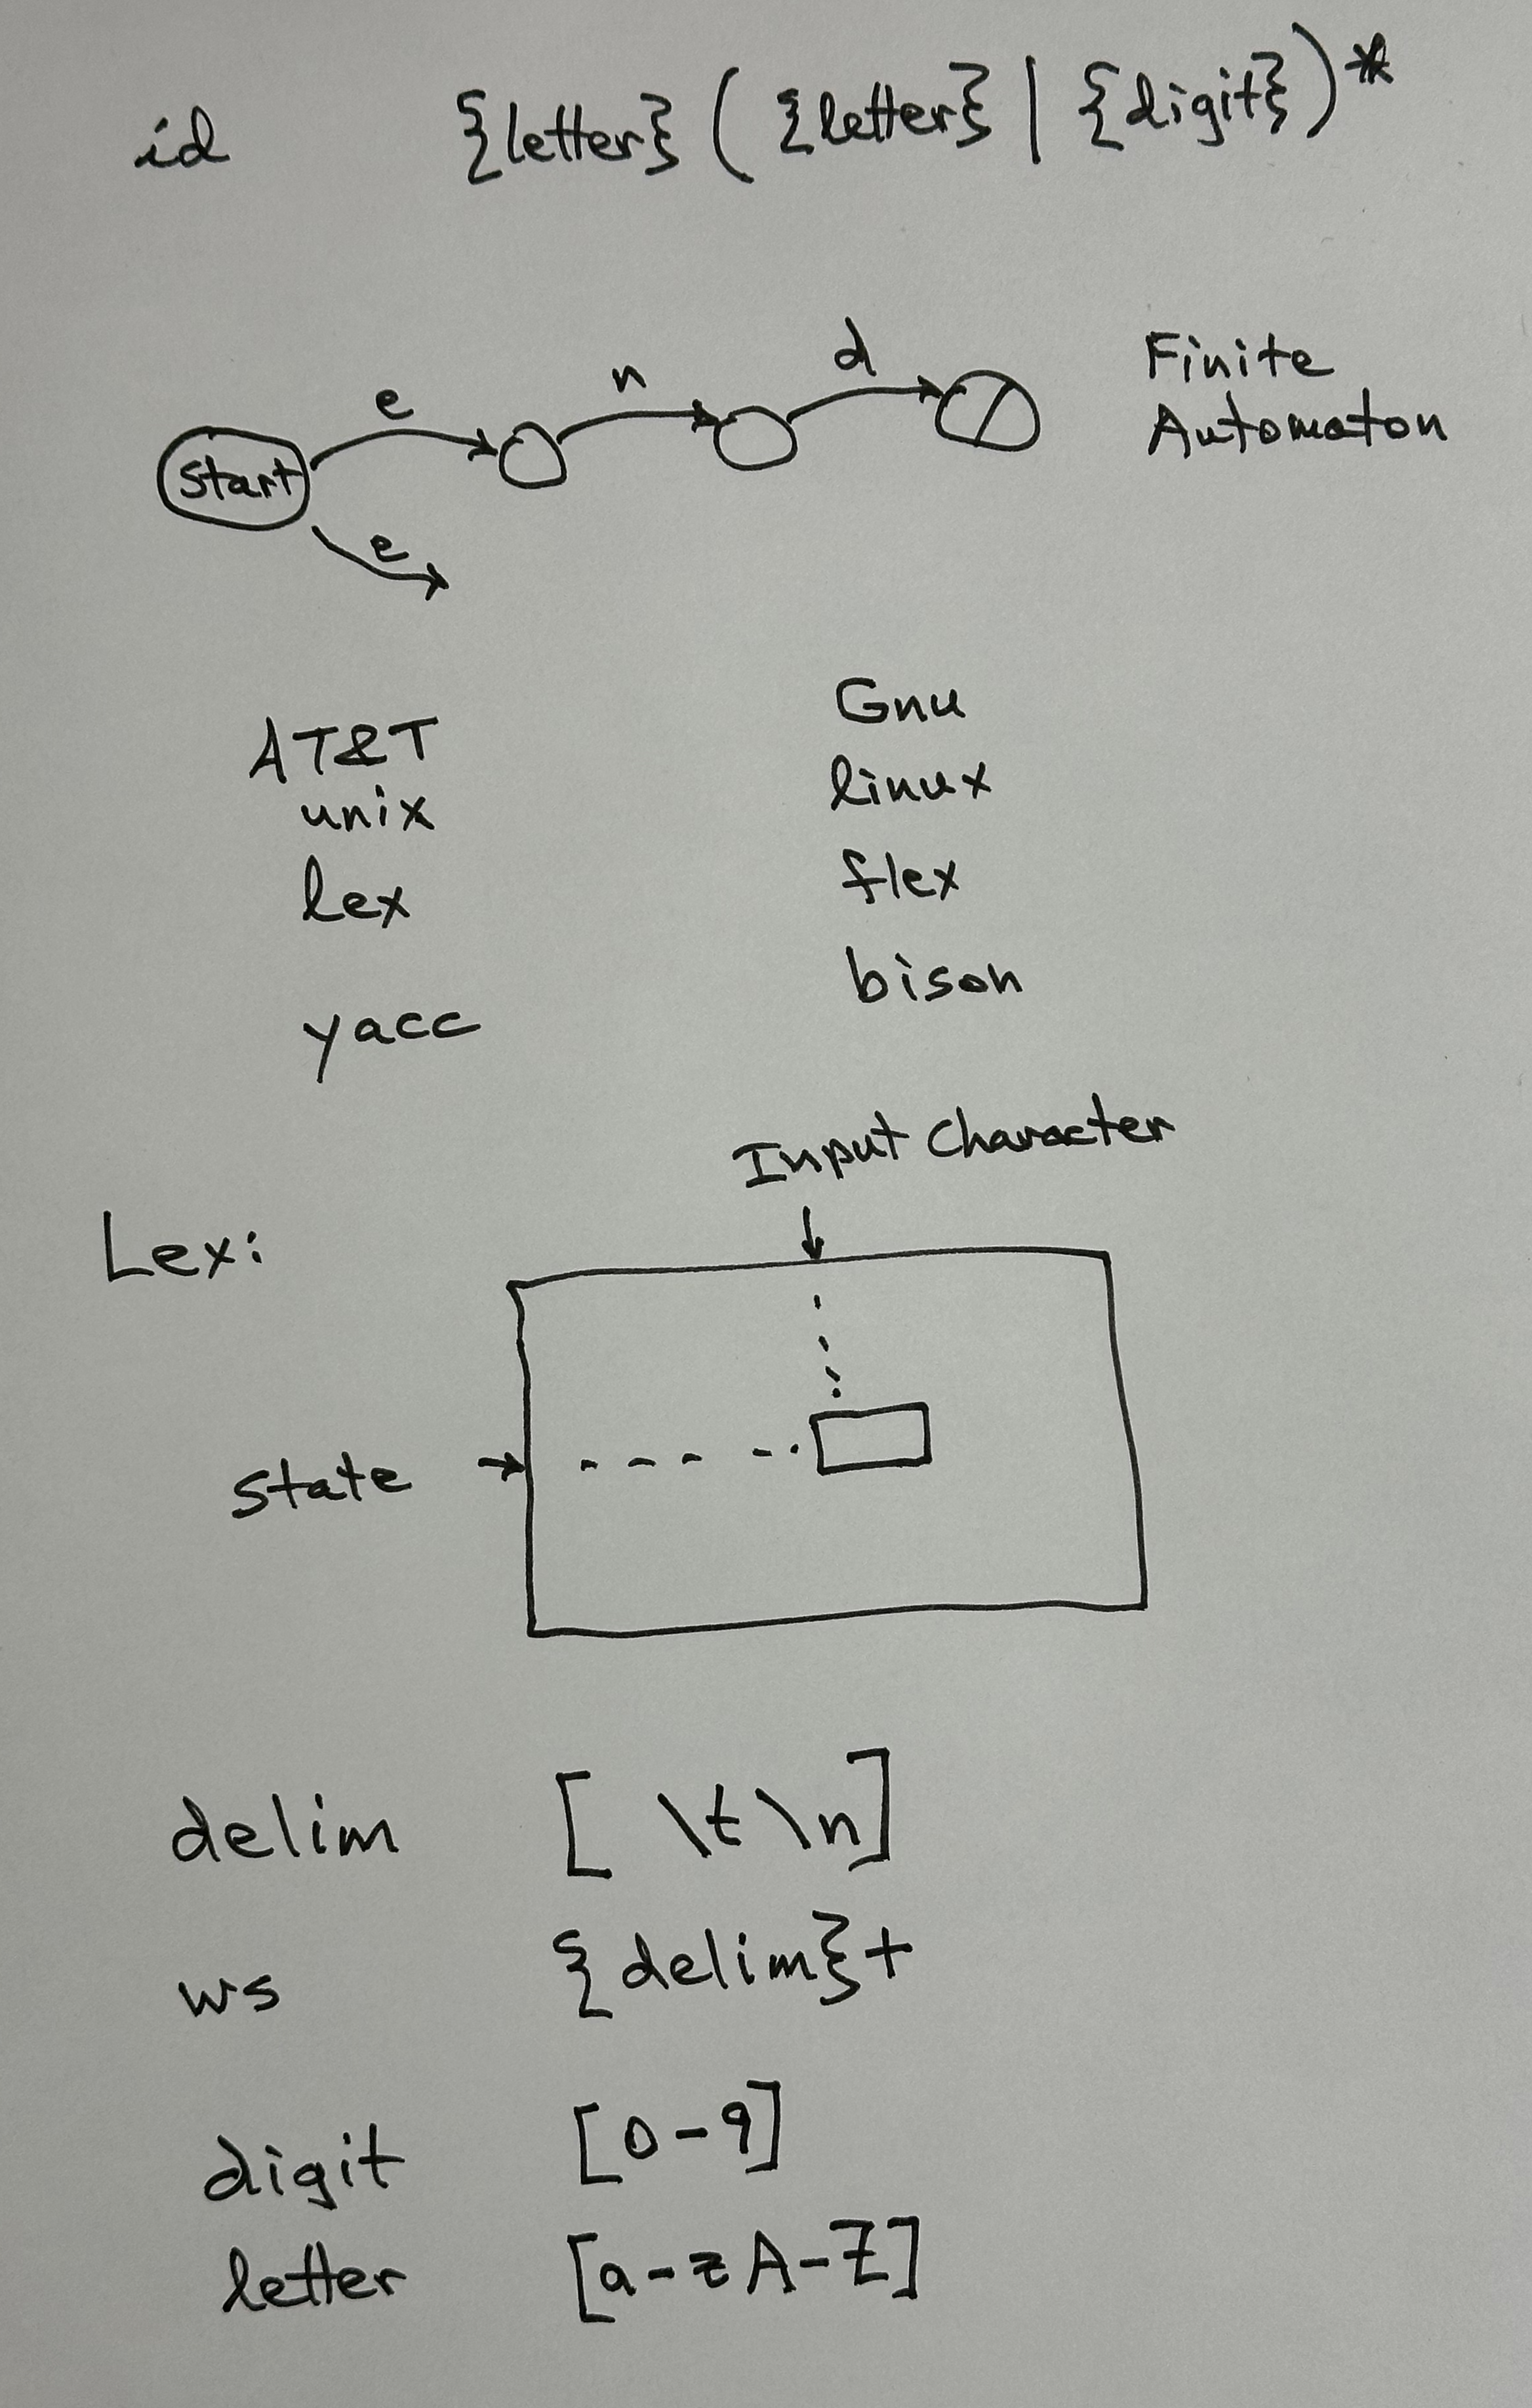 id {letter} ( {letter} | {digit} )*
e n d
Finite
Automaton
start
e
AT&T
unix
lex
yacc
Gnu
linux
flex
bison
Input Character
Lex:
state
delim [ \t\n]
ws {delim}+
digit [0-9]
letter [a-zA-Z]